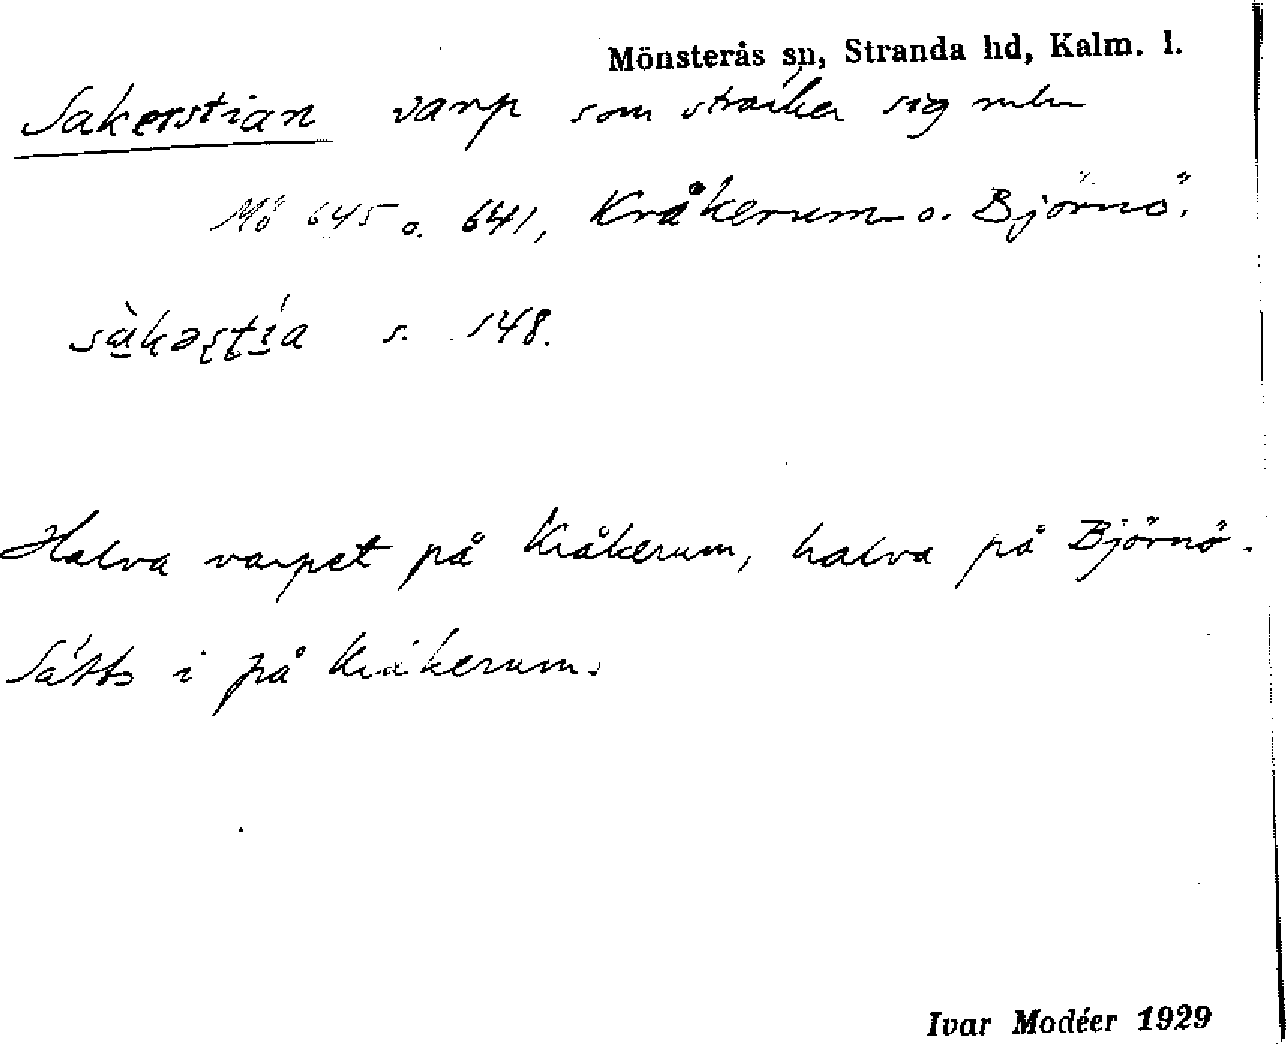 Mönsterås sn, Stranda hd, Kalm. l.
Sakerstian varp som sträcker sig mln
Mö 645 o. 641, Kråkerum o. Björnö.
s. 148.
Halva varpet på Kråkerum, halva på Björnö.
Sätts i på Kråkerum.
Ivar Modéer 1929